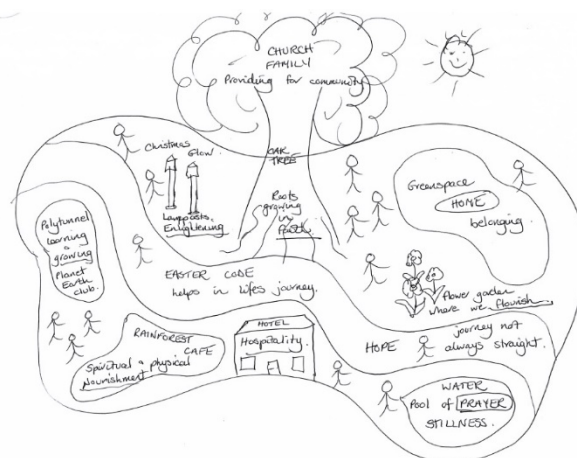 CHURCH
FAMILY
Providing for community
Christmas
Glow.
OAK
TREE
Lampposts.
Enlightening
Roots
growing
in
faith
Greenspace
HOME
belonging.
Polytunnel
learning &
growing
Planet
Earth
club.
EASTER CODE
helps in lifes journey.
flower garden
where we flourish
RAINFOREST
CAFE
Spiritual & physical
Nourishment
HOTEL
Hospitality.
HOPE
journey not
always straight.
WATER
Pool of PRAYER
STILLNESS.